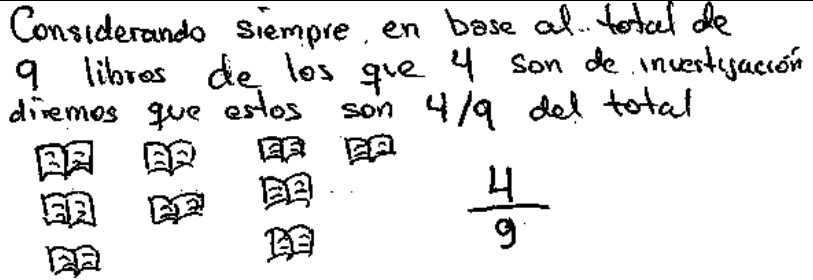 Considerando siempre en base al total de
9 libros de los que 4 son de investigación
diremos que estos son 4/9 del total
4
9